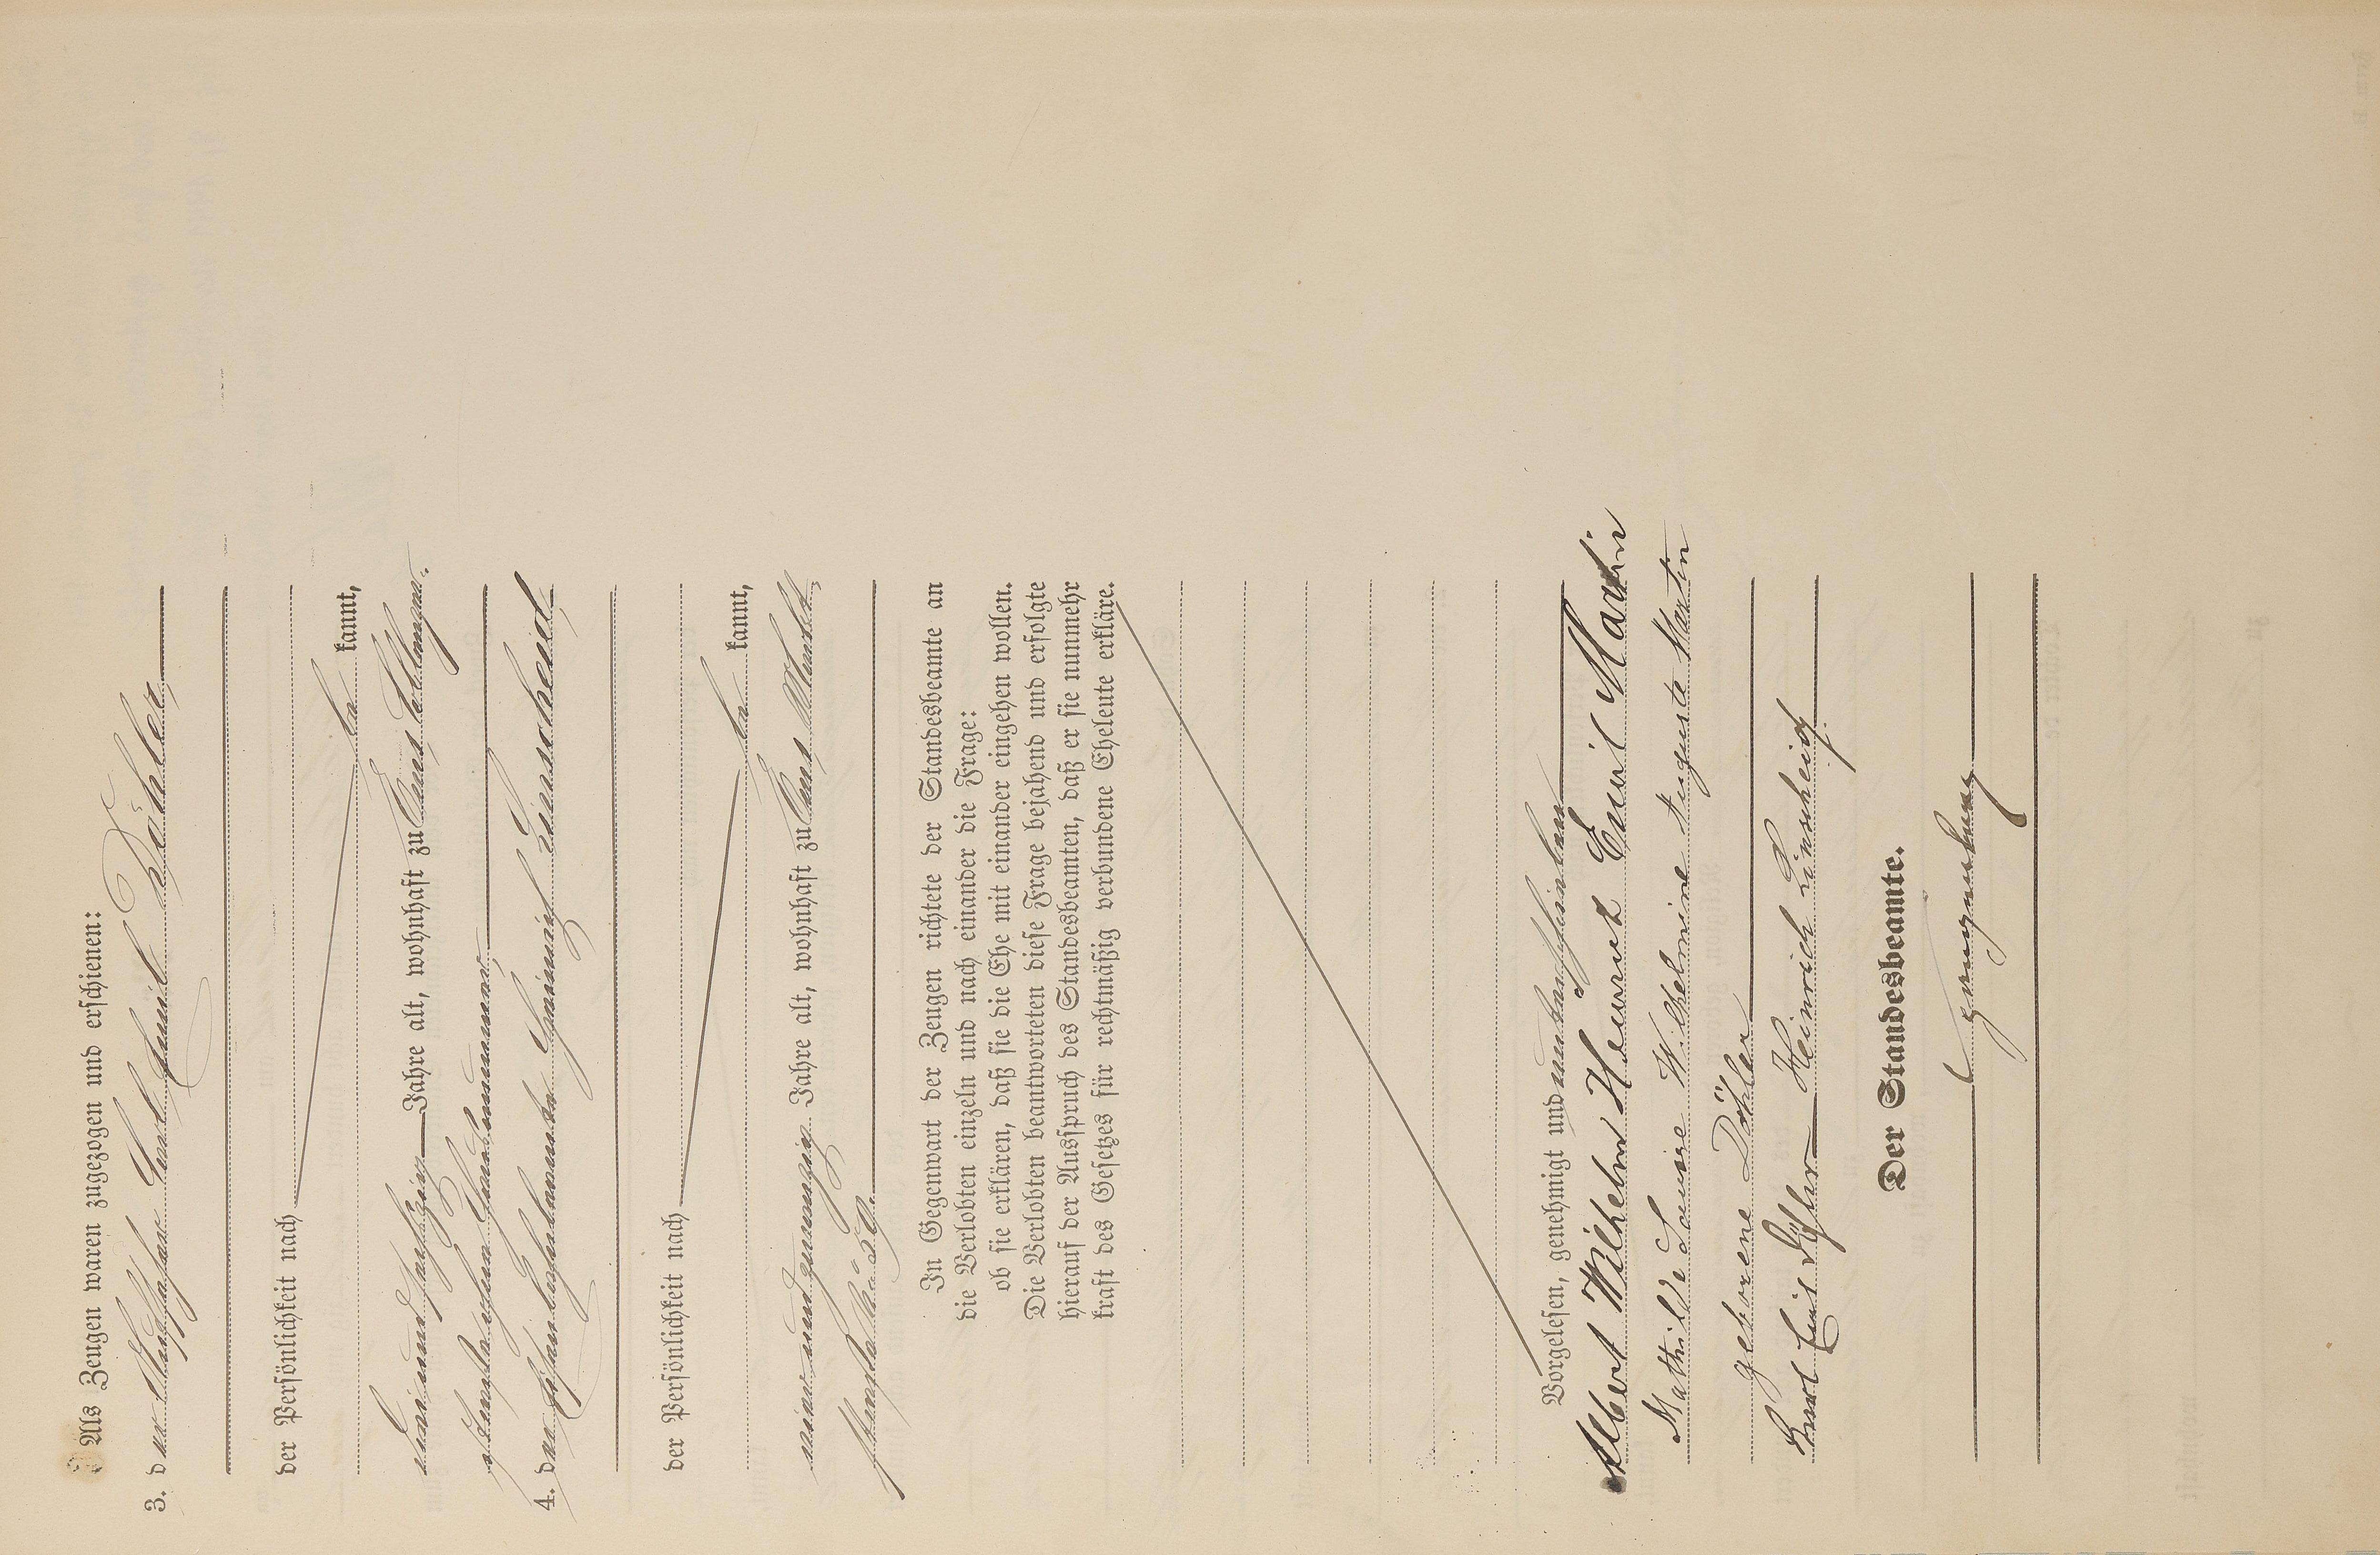 Als Zeugen waren zugezogen und erschienen:
3. der Carl Emil Döhler,
der Persönlichkeit nach
be kannt,
zweiundsechszig Jahre alt, wohnhaft zu Ems,
4. der Heinrich Linscheid,
der Persönlichkeit nach
be kannt,
neunundzwanzig Jahre alt, wohnhaft zu Ems,
In Gegenwart der Zeugen richtete der Standesbeamte an
die Verlobten einzeln und nach einander die Frage:
ob sie erklären, daß sie die Ehe mit einander eingehen wollen.
Die Verlobten beantworteten diese Frage bejahend und erfolgte
hierauf der Ausspruch des Standesbeamten, daß er sie nunmehr
kraft des Gesetzes für rechtmäßig verbundene Eheleute erkläre.
Vorgelesen, genehmigt und unterschrieben
Albert Wilhelm Helmuth Emil Martin
Mathilde Louise Wilhelmine Auguste Martin
geborene Döhler
Carl Emil Döhler Heinrich Linscheid
Der Standesbeamte.